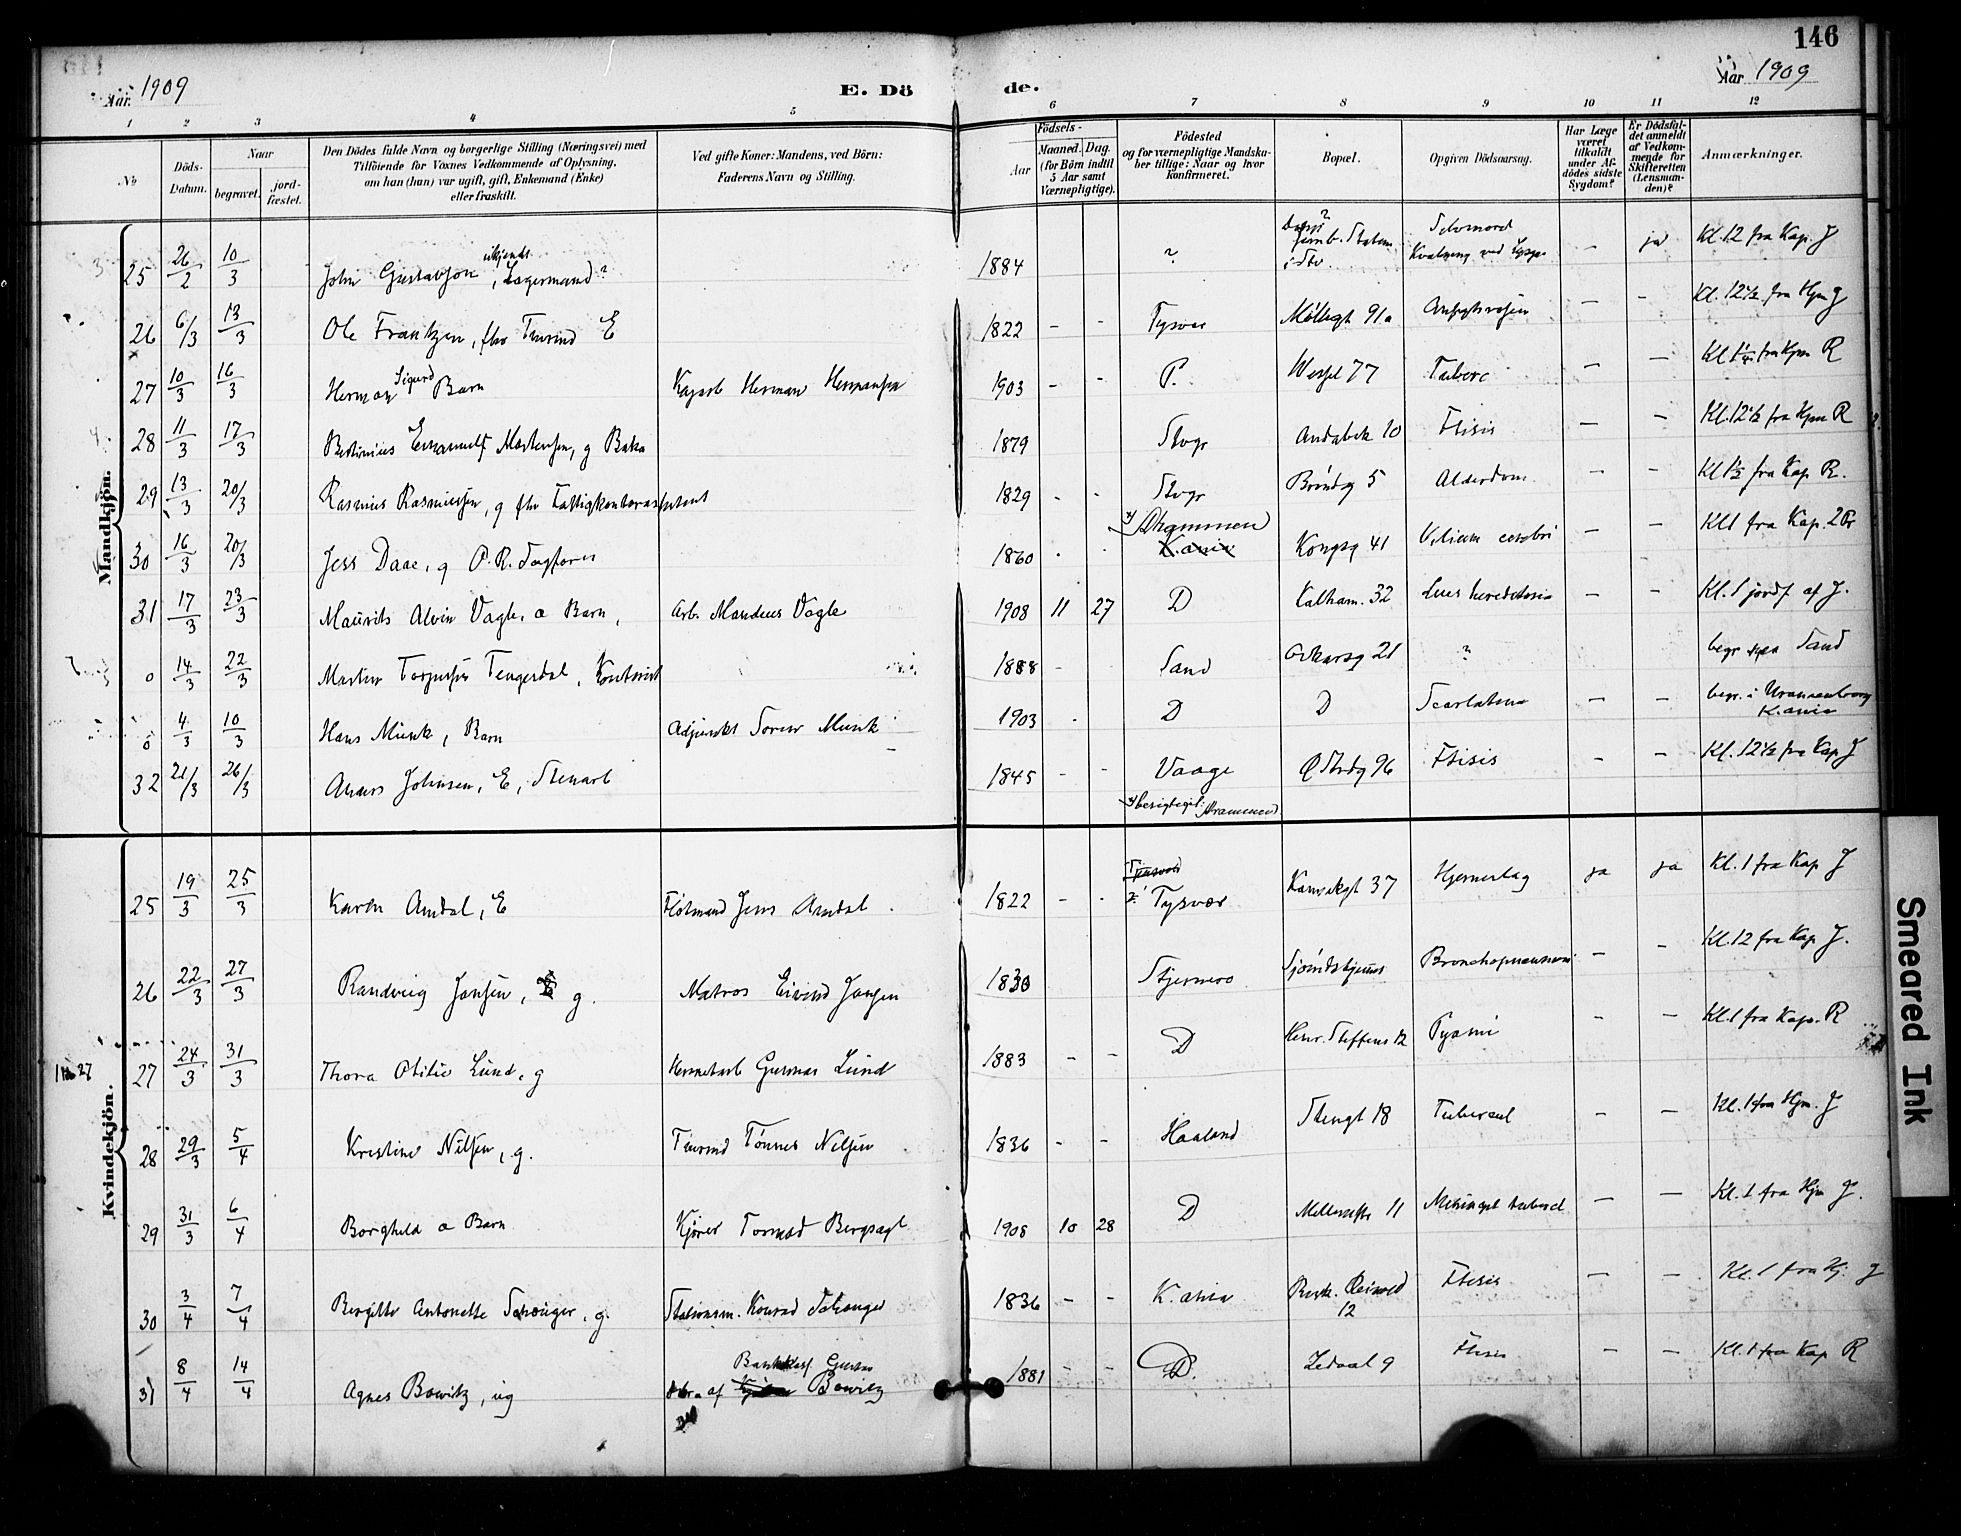 146
Aar. 1909
E. Dö
de.
Aar 1909
1 2 3 4 5 6 7 8 9 10 11 12
No
Döds-Datum.
Naar
begravet.
jord-fæstet.
Den Dödes fulde Navn og borgerlige Stilling (Næringsvei) med
Tilföiende for Voxnes Vedkommende af Oplysning,
om han (hun) var ugift, gift, Enkemand (Enke)
eller fraskilt.
Ved gifte Koner: Mandens, ved Börn:
Faderens Navn og Stilling.
Födsels-
Aar
Maaned. Dag.
(for Börn indtil
5 Aar samt
Værnepligtige).
Födested
og for værnepligtige Mandska-
ber tillige: Naar og hvor
konfirmeret.
Bopæl.
Opgiven Dödsaarsag.
Har Læge
været
tilkaldt
under Af-
dödes sidste
Sygdom?
Er Dödsfal-
det anmeldt
af Vedkom-
mende for
Skifteretten
(Lensman-
den)?
Anmærkninger.
Mandkjön.
25 26/2 10/3 John Gustavson, Lagermand? 1884 ? Selvmord - ja Kl. 12 fra Kap. J
26 6/3 13/3 Ole Frantzen, fhv Tmrmd E 1822 - - Tysvær Møllegt 91a - - Kl. 12 1/2 fra Hjm J
27 10/3 16/3 Herman Sigurd Barn Herman Hermansen 1903 - - P. Wessel 77 Tuberc - - Kl 1 1/4 fra Hjm R
28 11/3 17/3 Mortensen, g 1879 Stvgr Andabek 10 Ftisis - - Kl. 12 1/2 fra Hjm R
29 13/3 20/3 Rasmus Rasmussen, g fhv Fattigkontorassistent 1829 - - Stvgr Brøndg 5 Alderdom - - Kl 1 1/2 fra Kap R.
30 16/3 20/3 Jess Daae, g O.R. Sagfører 1860 x) Drammen K.ania Kongsg 41 Vitium cerebri - - Kl 1 fra Kap. 2 Pr
31 17/3 23/3 Maurits Alvin Vagle, a Barn, Arb. Mandius Vagle 1908 11 27 D Kalham. 32 Lues hereditaria - - Kl. 1 jordf af J.
0 14/3 22/3 Martin Torjussen Tengesdal, Kontorist 1888 - Sand Oskarsg 21 ? begr. paa Sand
0 4/3 10/3 Hans Munk, Barn Adjunkt Soren Munk 1903 - D D Scarlatina - - begr. i Uranienborg K.ania
32 21/3 26/3 Johnsen, E, Stenarb 1845 - - Vaage Ø Strdg 96 Ftisis - - Kl. 12 1/2 fra Kap J
x) berigtiget: Drammen.
Kvindekjön.
25 19/3 25/3 Karen Amdal, E Flotmand Jens Amdal 1822 - - Tysvær Kanikgt 37 Hjerneslag ja ja Kl. 1 fra Kap J
26 22/3 27/3 Randveig Jansen, g. Matros Eivind Jansen 1830 Stjernerø Sjømdshjemmet Bronchopneumoni - - Kl. 12 fra Kap J.
No 27
27 24/3 31/3 Thora Otilie Lund, g Hermetarb Gunnar Lund 1883 - - D Henr. Steffens 12 Pyæmi - - Kl. 1 fra Kap. R
28 29/3 5/4 Kristine Nilsen, g. Tmrmd Tønnes Nilsen 1836 - - Haaland Stengt 18 Tubercul - - Kl. 1 fra Hjm. J
29 31/3 6/4 Borghild a Barn Kjører Tormod Bergsagel 1908 10 28 D 11 Meningit tubercl - - Kl. 1 fra Hjm J.
30 3/4 7/4 Bergitte Antonette Schønger, g. Stationsm. Konrad Schønger 1836 - - K.ania 12 Ftisis - - Kl. 1 fra Hj. J
31 8/4 14/4 Agnes Bowitz, ug Dtr. af Bankkass. Gustav Bowitz 1881 - - D. Ledaal 9 Ftisis - - Kl. 1 fra Kap R
Smeared Ink